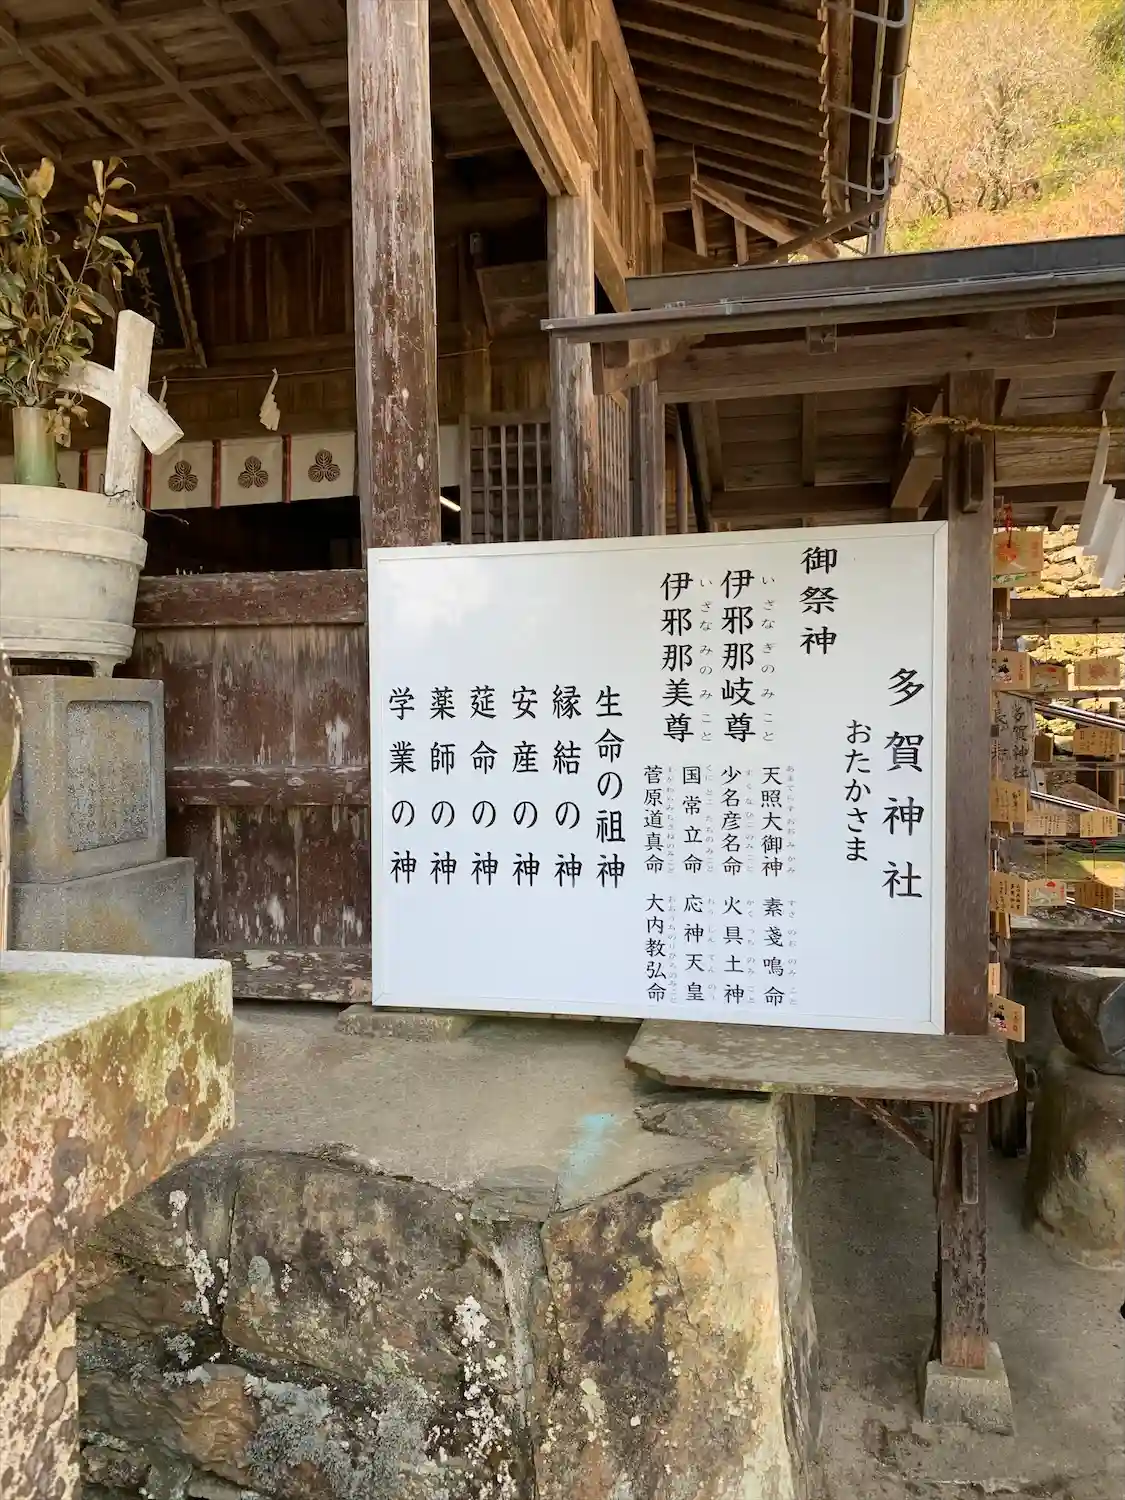 多賀神社
おたかさま
御祭神
いざなぎのみこと
伊邪那岐尊
いざなみのみこと
伊邪那美尊
あまてらすおおみかみ
天照大御神
すくなひこのみこと
少名彦名命
くにとこたちのみこと
国常立命
すがわらみちざねのみこと
菅原道真命
すさのおのみこと
素戔鳴命
かぐつちのみこと
火具土神
応神天皇
大内教弘命
生命の祖神
縁結の神
安産の神
莚命の神
薬師の神
学業の神
多賀神社